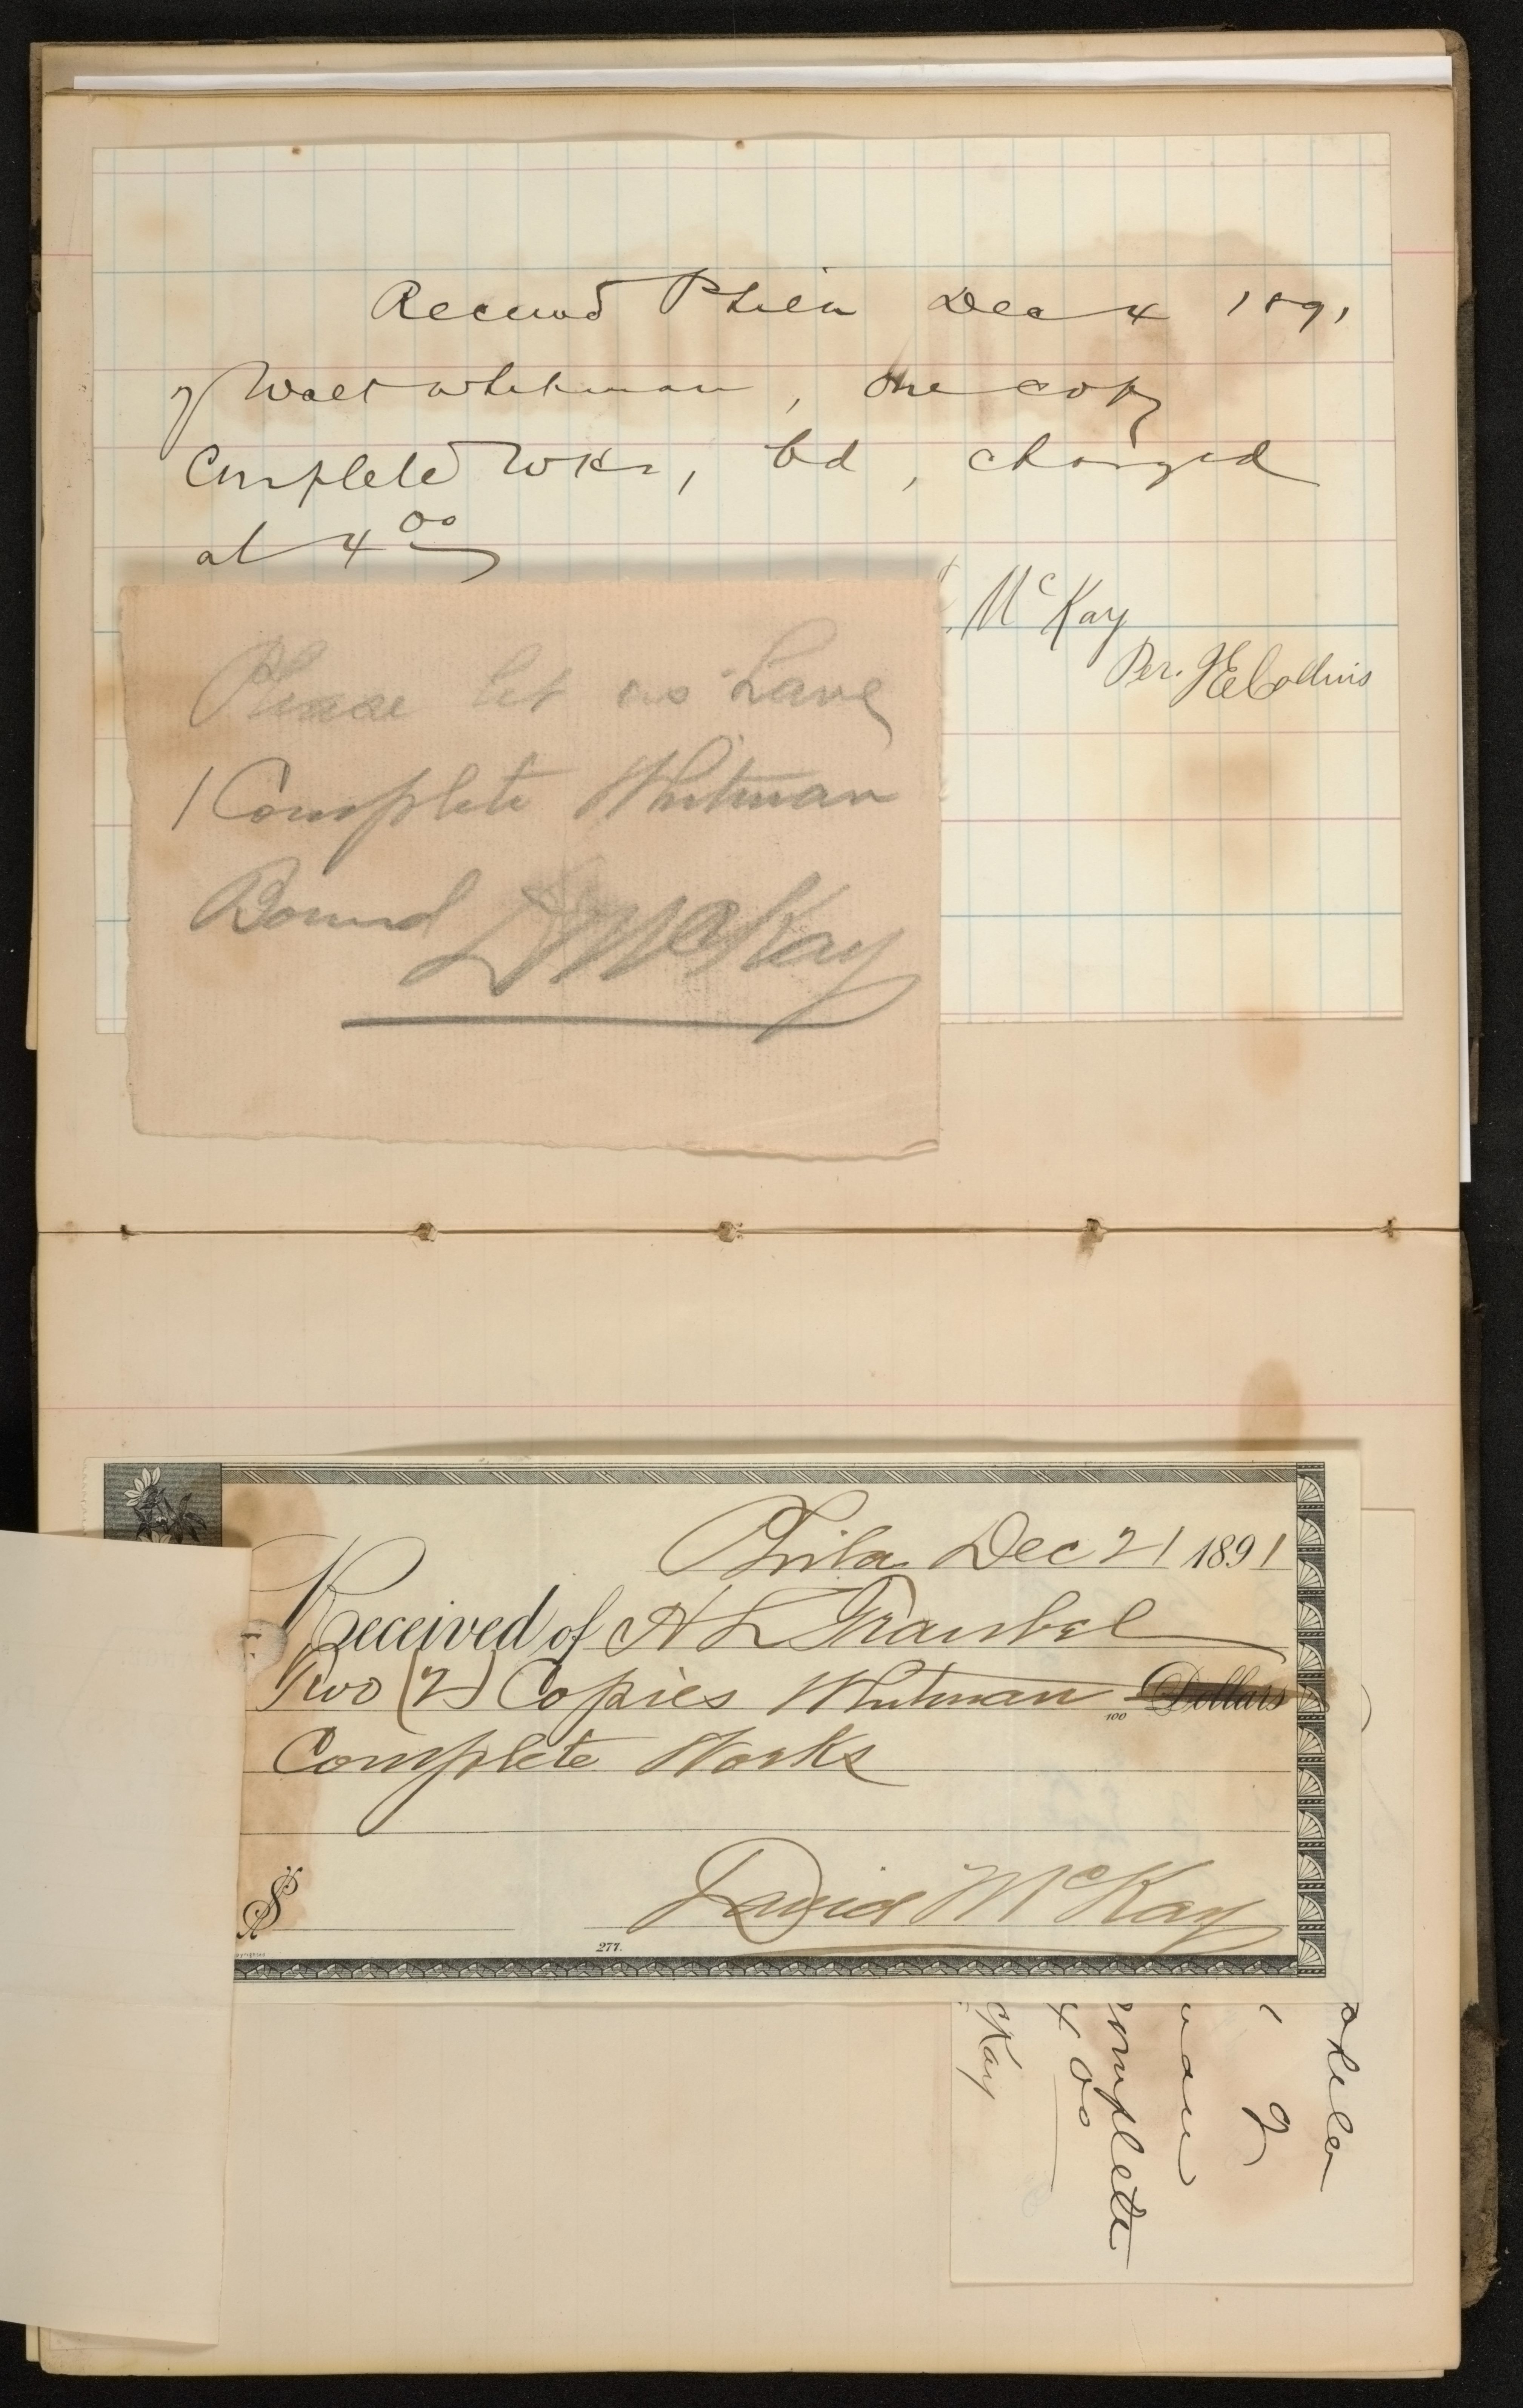 Received Phila Dec 4 1891
of Walt Whitman, one copy
Complete Wks, bd, charged
at 4 00
McKay
Per. HECollins
Please let us have
1 Complete Whitman
Bound D McKay
Phila Dec 21 1891
Received of H L Traubel
Two (2) Copies Whitman 100 Dollars
Complete Works
$
David McKay
277.
omplete
4 00
cKay